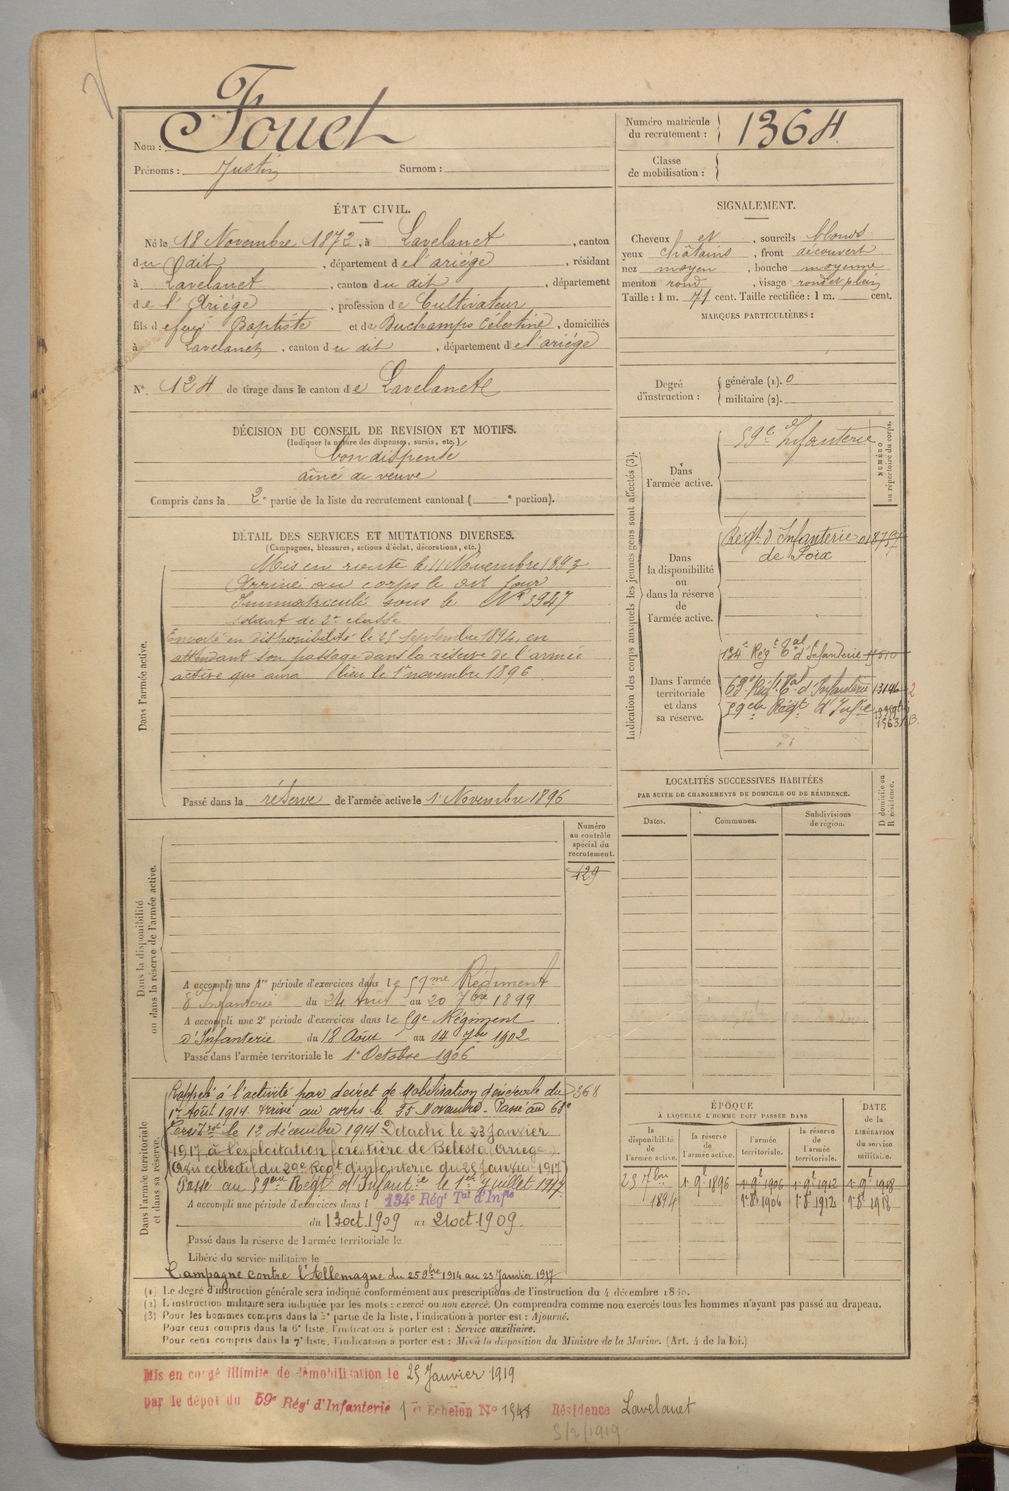 Nom : Fouet
Prénoms : Justin Surnom :
Numéro matricule du recrutement : 1364
Classe de mobilisation :
ÉTAT CIVIL.
Né le 18 Novembre 1872, à Lavelanet, canton
du dit, département de l'ariége, résidant
à Lavelanet, canton du dit, département
de l'Ariége, profession de Cultivateur
fils de feu Baptiste et de Duchamps Célestine, domiciliés
à Lavelanet, canton du dit, département de l'ariége
N° 124 de tirage dans le canton de Lavelanet
DÉCISION DU CONSEIL DE REVISION ET MOTIFS.
(Indiquer la nature des dispenses, sursis, etc.)
bon dispensé
aîné de veuve
Compris dans la 2e partie de la liste du recrutement cantonal ( e portion).
DÉTAIL DES SERVICES ET MUTATIONS DIVERSES.
(Campagnes, blessures, actions d'éclat, décorations, etc.)
Dans l'armée active.
Mis en route le 11 Novembre 1893
Arrivé au corps le dit jour
Immatriculé sous le N° 3947
soldat de 2e classe
Envoyé en disponibilité le 25 Septembre 1894, en
attendant son passage dans la réserve de l'armée
active qui aura lieu le 1 novembre 1896
Passé dans la réserve de l'armée active le 1r Novembre 1896
Dans la disponibilité ou dans la réserve de l'armée active.
Numéro au contrôle spécial du recrutement.
129
A accompli une 1re période d'exercices dans le 59me Régiment
d'Infanterie du 24 Août au 20 7bre 1899
A accompli une 2e période d'exercices dans le 59e Régiment
d'Infanterie du 18 Août au 14 7bre 1902
Passé dans l'armée territoriale le 1r Octobre 1906
Dans l'armée territoriale et dans sa réserve.
Rappelé à l'activité par décret de Mobilisation générale du 368
1er Août 1914. Arrivé au corps le 25 Novembre. Passé au 68e
Territ le 12 décembre 1914 Détaché le 23 Janvier
1917 à l'exploitation forestière de Bélesta (Ariège)
Passé au 59me Régt d'Infantie le 1er Juillet 1917
A accompli une période d'exercices dans l 134e Régt Tal d'Infie
du 13 oct. 1909 au 21 oct 1909.
Passé dans la réserve de l'armée territoriale le
Libéré du service militaire le
Campagne contre l'Allemagne du 25 9bre 1914 au 23 Janvier 1917
SIGNALEMENT.
Cheveux et, sourcils blonds
yeux châtains, front découvert
nez moyen, bouche moyenne
menton rond, visage rond et plein
Taille : 1 m. 71 cent. Taille rectifiée : 1 m. cent.
MARQUES PARTICULIÈRES :
Degré d'instruction :
générale (1). 0
militaire (2).
Indication des corps auxquels les jeunes gens sont affectés (3).
NUMÉRO au répertoire du corps.
Dans l'armée active.
59e d'Infanterie
Dans la disponibilité ou dans la réserve de l'armée active.
Régt d'Infanterie
de Foix
Dans l'armée territoriale et dans sa réserve.
134e Régt Tal d'Infanterie
68e Régt Tal d'Infanterie 13146
59e Régt d'Infie
LOCALITÉS SUCCESSIVES HABITÉES
PAR SUITE DE CHANGEMENTS DE DOMICILE OU DE RÉSIDENCE.
Dates. Communes. Subdivisions de région. D domicile ou R résidence.
ÉPOQUE
À LAQUELLE L'HOMME DOIT PASSER DANS
DATE de la LIBÉRATION du service militaire.
la disponibilité de l'armée active. la réserve de l'armée active. l'armée territoriale. la réserve de l'armée territoriale.
25 7bre 1894 1r 9b 1896 1r 9b 1906 1r 9b 1912 1r 9b 1918
1r 8b 1906 1r 8b 1912 1r 8b 1918
(1) Le degré d'instruction générale sera indiqué conformément aux prescriptions de l'instruction du 4 décembre 1889.
(2) L'instruction militaire sera indiquée par les mots : exercé ou non exercé. On comprendra comme non exercés tous les hommes n'ayant pas passé au drapeau.
(3) Pour les hommes compris dans la 5e partie de la liste, l'indication à porter est : Ajourné.
Pour ceux compris dans la 6e liste, l'indication à porter est : Service auxiliaire.
Pour ceux compris dans la 7e liste, l'indication à porter est : Mis à la disposition du Ministre de la Marine. (Art. 4 de la loi.)
Mis en congé illimité de démobilisation le 25 Janvier 1919
par le dépôt du 59e Régt d'Infanterie 1er Echelon N° 1548 Résidence Lavelanet
5/2/1919